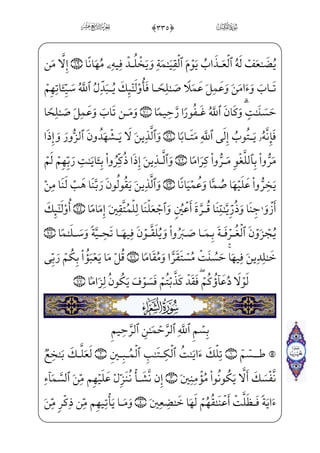 ﴿٣٣٥﴾
يُضَٰعَفْ لَهُ ٱلْعَذَابُ يَوْمَ ٱلْقِيَٰمَةِ وَيَخْلُدْ فِيهِۦ مُهَانًا ۝٦٩ إِلَّا مَن
تَابَ وَءَامَنَ وَعَمِلَ عَمَلًا صَٰلِحًا فَأُو۟لَٰٓئِكَ يُبَدِّلُ ٱللَّهُ سَيِّـَٔاتِهِمْ
حَسَنَٰتٍ ۗ وَكَانَ ٱللَّهُ غَفُورًا رَّحِيمًا ۝٧٠ وَمَن تَابَ وَعَمِلَ صَٰلِحًا
فَإِنَّهُۥ يَتُوبُ إِلَى ٱللَّهِ مَتَابًا ۝٧١ وَٱلَّذِينَ لَا يَشْهَدُونَ ٱلزُّورَ وَإِذَا
مَرُّوا۟ بِٱللَّغْوِ مَرُّوا۟ كِرَامًا ۝٧٢ وَٱلَّذِينَ إِذَا ذُكِّرُوا۟ بِـَٔايَٰتِ رَبِّهِمْ لَمْ
يَخِرُّوا۟ عَلَيْهَا صُمًّا وَعُمْيَانًا ۝٧٣ وَٱلَّذِينَ يَقُولُونَ رَبَّنَا هَبْ لَنَا مِنْ
أَزْوَٰجِنَا وَذُرِّيَّٰتِنَا قُرَّةَ أَعْيُنٍ وَٱجْعَلْنَا لِلْمُتَّقِينَ إِمَامًا ۝٧٤ أُو۟لَٰٓئِكَ
يُجْزَوْنَ ٱلْغُرْفَةَ بِمَا صَبَرُوا۟ وَيُلَقَّوْنَ فِيهَا تَحِيَّةً وَسَلَٰمًا ۝٧٥
خَٰلِدِينَ فِيهَا ۚ حَسُنَتْ مُسْتَقَرًّا وَمُقَامًا ۝٧٦ قُلْ مَا يَعْبَؤُا۟ بِكُمْ رَبِّى
لَوْلَا دُعَآؤُكُمْ ۖ فَقَدْ كَذَّبْتُمْ فَسَوْفَ يَكُونُ لِزَامًۢا ۝٧٧
سُورَةُ ٱلشُّعَرَاءِ
بِسْمِ ٱللَّهِ ٱلرَّحْمَٰنِ ٱلرَّحِيمِ
۞ طسٓمٓ ۝١ تِلْكَ ءَايَٰتُ ٱلْكِتَٰبِ ٱلْمُبِينِ ۝٢ لَعَلَّكَ بَٰخِعٌ
نَّفْسَكَ أَلَّا يَكُونُوا۟ مُؤْمِنِينَ ۝٣ إِن نَّشَأْ نُنَزِّلْ عَلَيْهِم مِّنَ ٱلسَّمَآءِ
ءَايَةً فَظَلَّتْ أَعْنَٰقُهُمْ لَهَا خَٰضِعِينَ ۝٤ وَمَا يَأْتِيهِم مِّن ذِكْرٍ مِّنَ